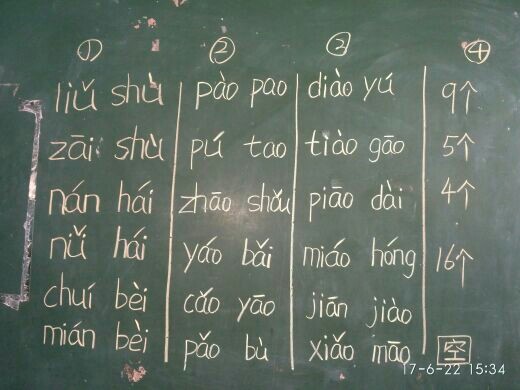 ① ② ③ ④
liǔ shù pào pao diào yú 9↑
zāi shù pú tao tiào gāo 5↑
nán hái zhāo shǒu piāo dài 4↑
nǚ hái yáo bǎi miáo hóng 16↑
chuí bèi cǎo yāo jiān jiào
mián bèi pǎo bù xiǎo māo 空
17-6-22 15:34